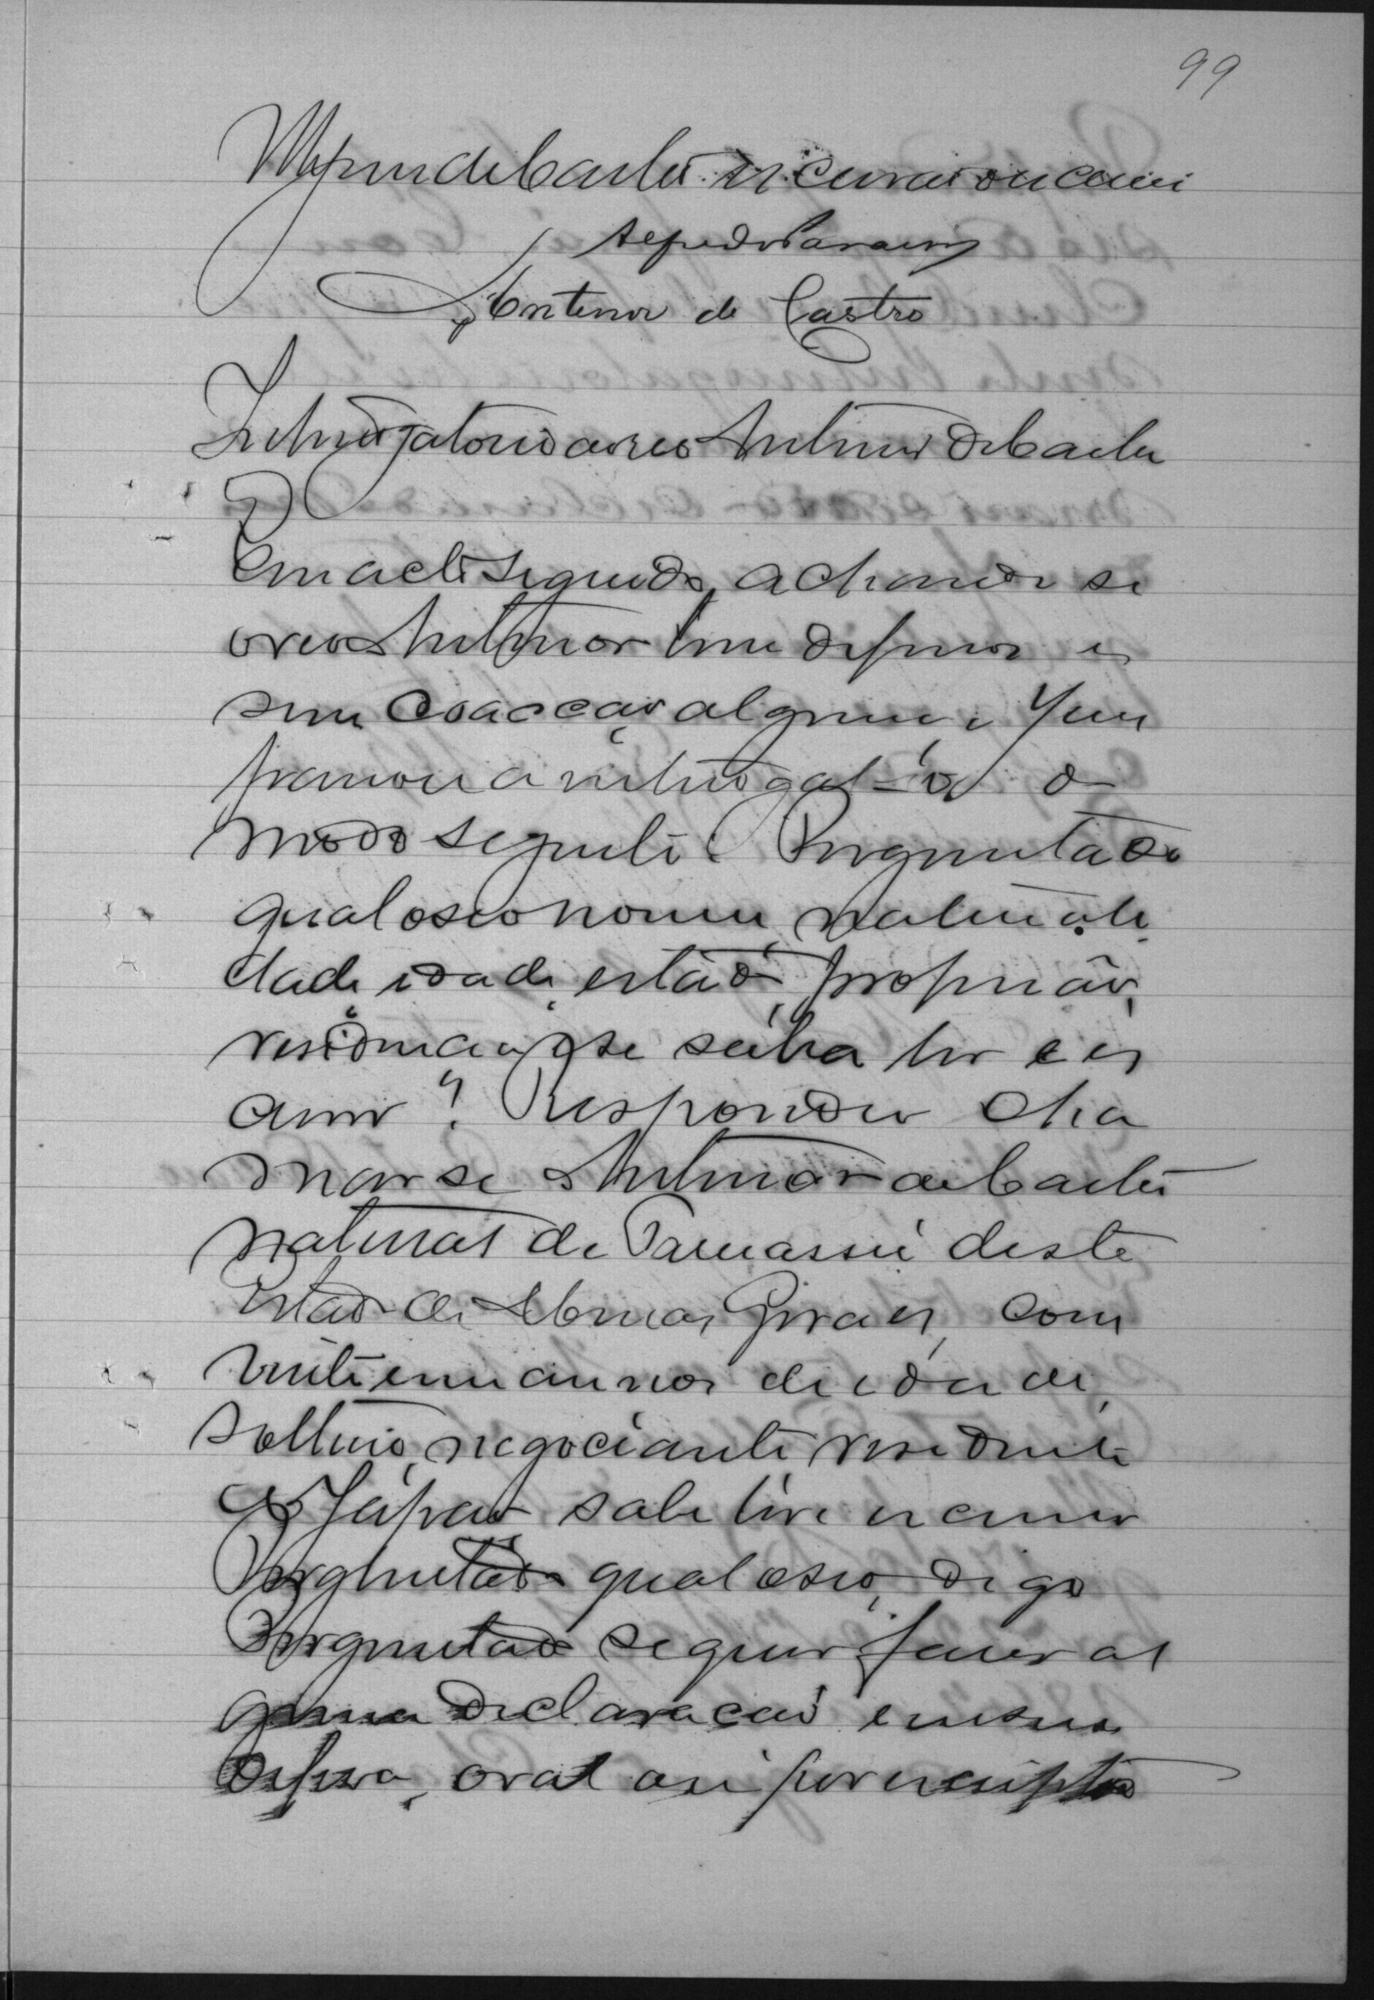 99
de Castro escrivão
Alfredo
Antenor de Castro
Interrogatorio ao reo Antenor de Castro
Em acto seguido, achando se
o reo Antenor livre de ferros e
sem coacção alguma, o Juiz
passou a interrogal-o do
modo seguinte: Perguntado
qual o seo nome, naturali
dade, idade, estado, profissão,
residencia e se sabia ler e es
crever? Respondeu cha
mar se Antenor de Castro
natural de Paraassú deste
Estado de Minas Geraes, com
vinte e um annos de idade,
solteiro, negociante residente
sabe ler e escrever
Perguntado qual o seo, digo
Perguntado se quer fazer al
guma declaração em sua
defesa, oral ou por escripto